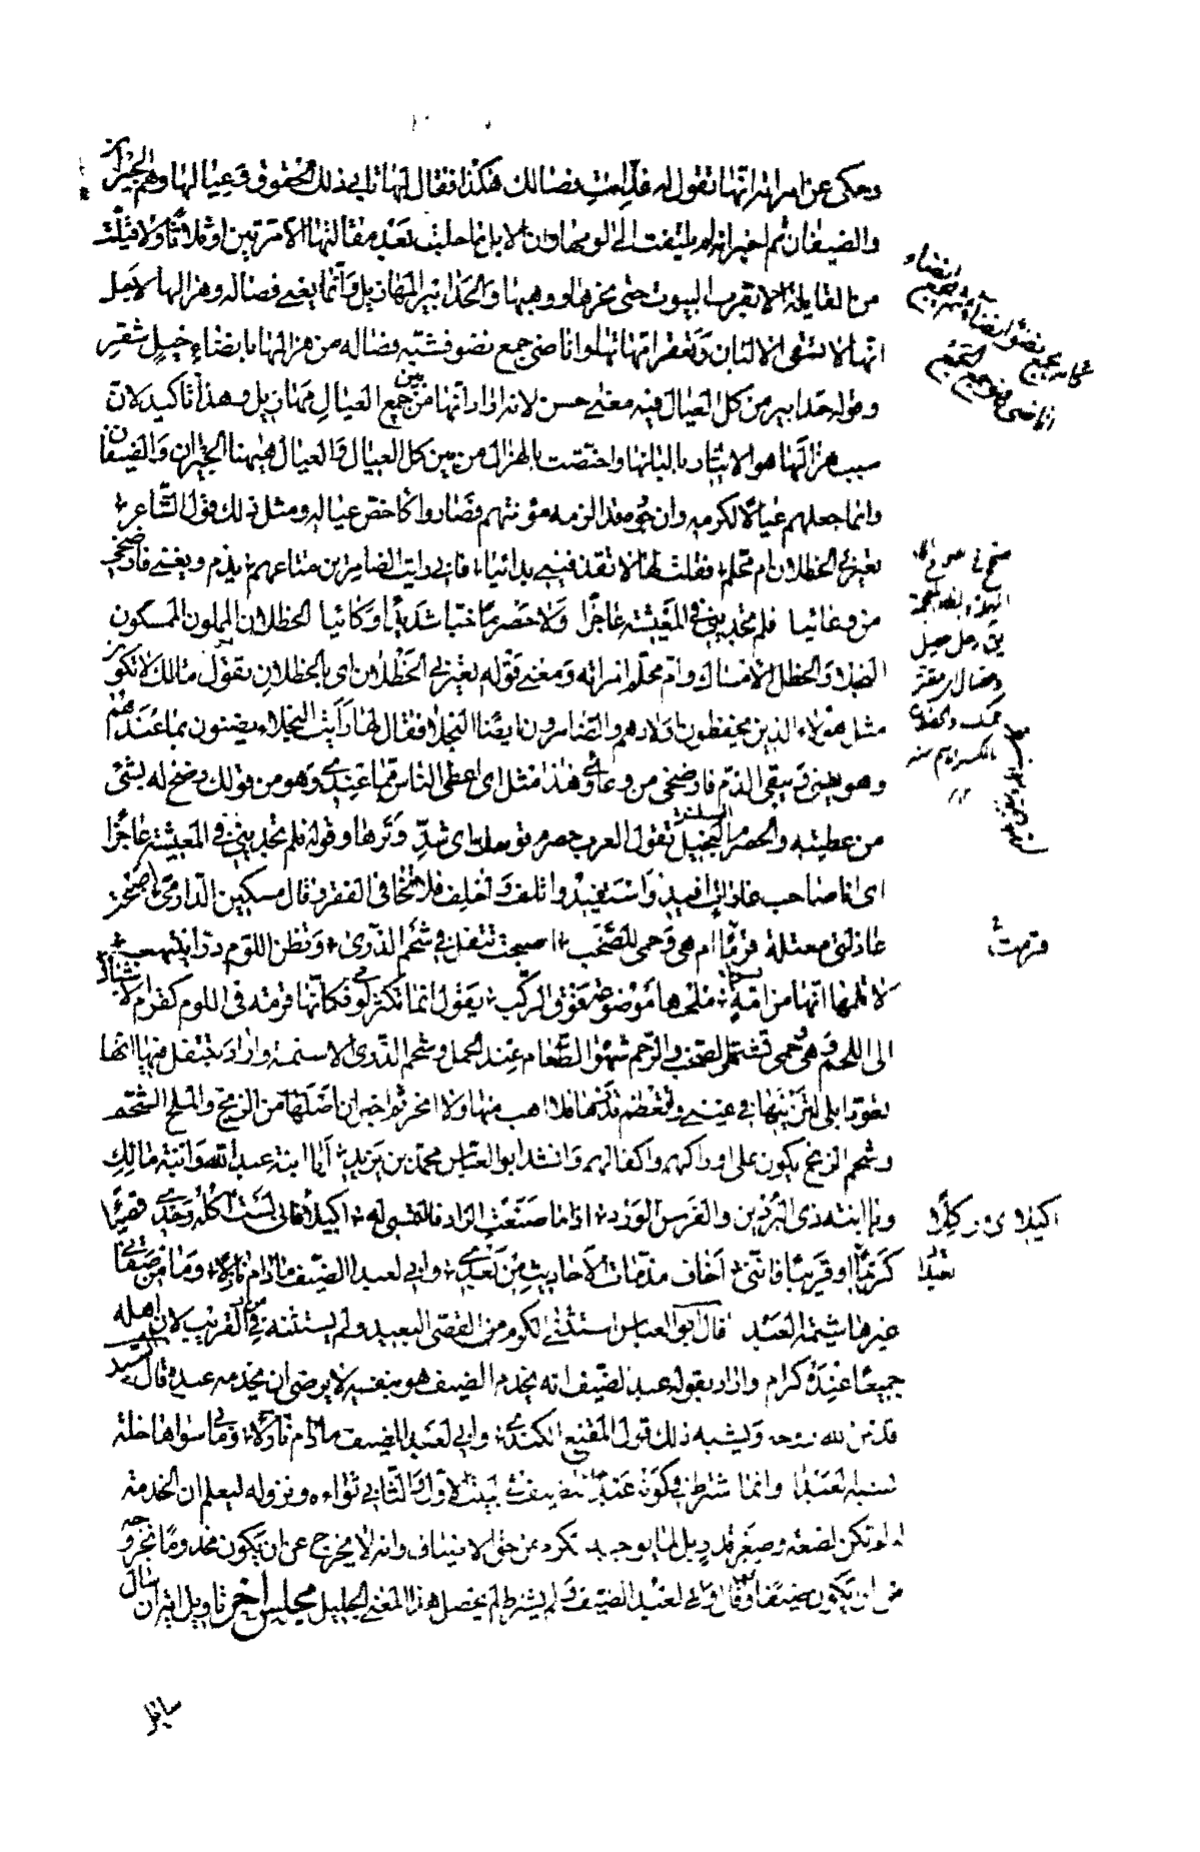 وحكى عن امراته انها تقول له فلم امست فصالك هكذا فقال لها تابى ذلك الحقوق في عيالها وهم الجيران
والضيفان ثم اخبر انه لم يلتفت الى لومها وان الابل ما حليف بعد مقالتها الا مرتين او ثلاثا ولا قيلت
من القايلة الا بقرب البيوت حتى نحرها ووهبها والحدابير المهازيل وانما يعنى فصاله وهزالها لاجل
انها لا تسقى الالبان وتعقر امهاتها وانضاء جمع نضو فشبه فصاله من هزالها بانضاء خيل شقر
وقوله حدابير من كل العيال فيه معنى حسن لانه اراد انها من بين جميع العيال مهازيل وهذا تاكيد لان
سبب هزالها هو الايثار بالبانها واختصت بالهزال من بين كل العيال والعيال ههنا الجيران والضيفان
وانما جعلهم عيالا لكرمه وان جوده قد الزمه مؤنتهم فصاروا كاخص عياله ومثل ذلك قول الشاعر
تعيرنى الحظلان ام محلم فقلت لها لا تقذفينى بدائيا فانى رايت الضامرين متاعهم يذم ويفنى فارضخى
من وعائيا فلم تجدينى فى المعيشة عاجزا ولا حصرما خبا شديدا وكائيا الحظلان الممسكون
البخلاء والحظل الامساك وام محلم امراته ومعنى قوله تعيرنى الحظلان اى بالحظلان يقول مالك لا تكون
مثل هؤلاء الذين يحفظون اولادهم والضامرون ايضا البخلا فقال لها رايت البخلاء يضنون بما عندهم
وهو يفنى ويبقى الذم فارضخى من وعائى وهذا مثل اى اعطى الناس مما عندى وهو من قولك رضخ له بشئ
من عطيته والحصرم البخيل تقول العرب حصرم قوسك اى شد وترها وقوله فلم تجدينى فى المعيشة عاجزا
اى انا صاحب غارات افيد واستفيد واتلف واخلف فلا تخافى الفقر وقال مسكين الدارمى اصبحت
عاذلتى معتلة قرما ام هى وحمى للصخب اصبحت تتفل فى شحم الذرى وتظن اللوم درا ينتهب
لا تلمها انها من امة ملحها موضوعة فوق الركب يقول انها تكثر لومى فكانها قرمة فى اللوم كقرم الانسان
الى اللحم وهى وحمى تشتهى الصخب والوحم شهوة الطعام عند الحمل وشحم الذرى الاسنمة واراد بتتفل فيها انها
تعوذ ابلى لتزينها فى عينى وتعظم قدرها فلا اهب منها ولا انحر ثم اخبر ان اصلها من الزنج والملح الشحم
وشحم الزنج يكون على اوراكهم واكفالهم وانشد ابو العباس محمد بن يزيد ايا ابنة عبد الله وابنة مالك
ويا ابنة ذى البردين والفرس الورد اذا ما صنعت الزاد فالتمسى له اكيلا فانى لست آكله وحدى قصيا
كريما او قريبا فاننى اخاف مذمات الاحاديث من بعدى وانى لعبد الضيف ما دام نازلا وما من صفاتى
غيرها شيمة العبد قال ابو العباس استثنى الكرم من القصى البعيد ولم يستثنه فى القريب لان اهله
جميعا عنده كرام واراد بقوله عبد الضيف انه يخدم الضيف هو بنفسه لا يرضى ان يخدمه عبده قال السيد
قدس الله روحه ويشبه ذلك قول المقنع الكندى وانى لعبد الضيف ما دام نازلا وما لى سواها خلة
تشبه العبدا وانما شرط فى كونه عبدا للضيف فى بيت الاول والثانى ثواءه ونزوله ليعلم ان الخدمة
لم تكن لضعة وصغر قدر بل لما يوجبه الكرم من حق الاضياف وانه لا يخرج عن ان يكون مخدوما بخروجه
من ان يكون ضيفا ولو قال وانى لعبد الضيف ولم يشترط لم يحصل هذا المعنى الجليل مجلس اخر تاويل اية ان سال
قرمت
اكيلا